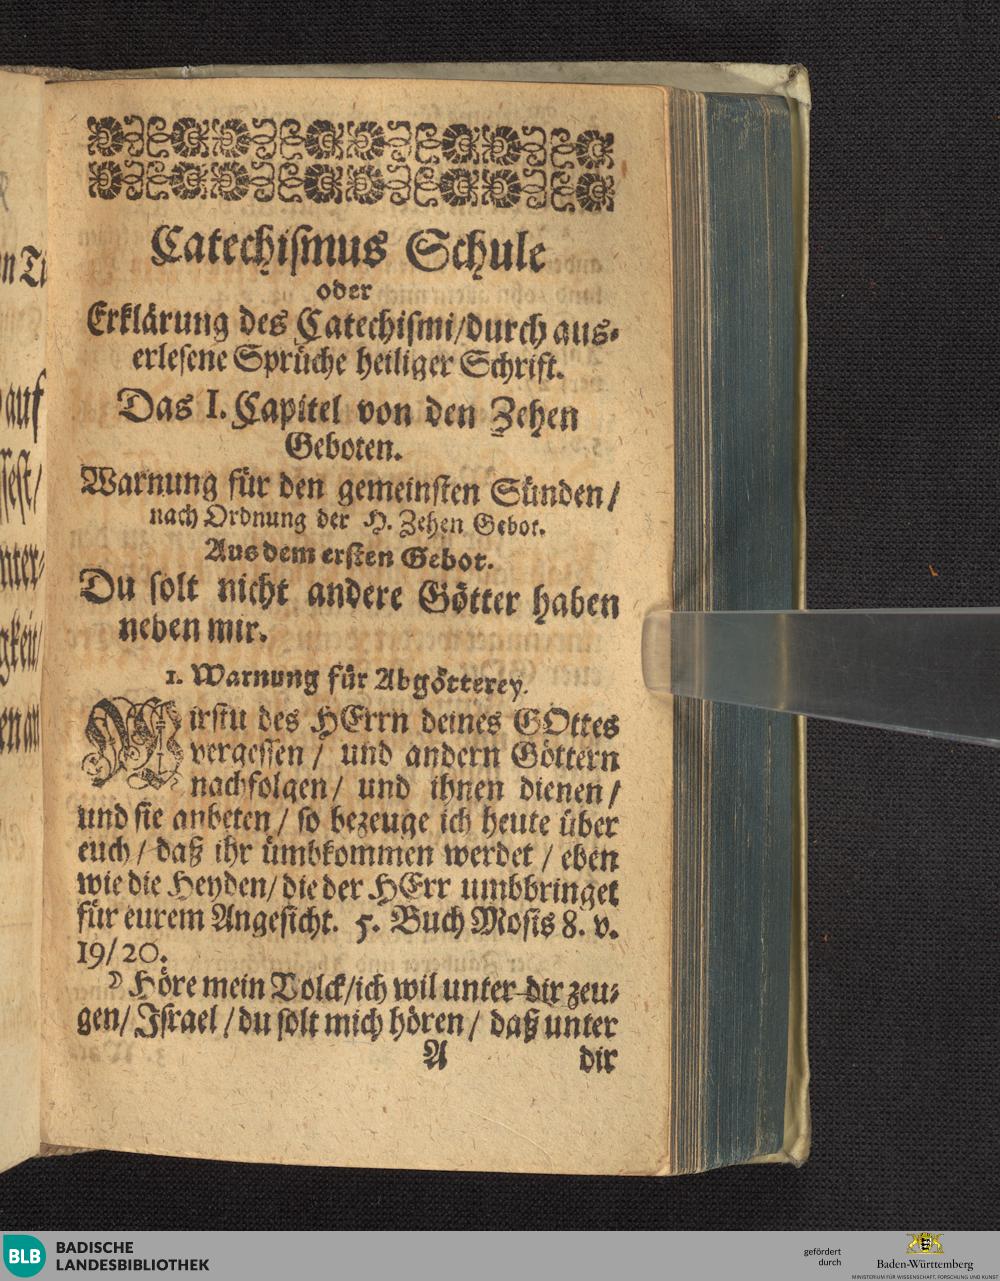 Catechismus Schule
oder
Erklärung des Catechismi/durch aus-
erlesene Sprüche heiliger Schrift.
Das I. Capitel von den Zehen
Geboten.
Warnung für den gemeinsten Sünden/
nach Ordnung der H. Zehen Gebot.
Aus dem ersten Gebot.
Du solt nicht andere Götter haben
neben mir.
1. Warnung für Abgötterey.
Wirstu des HErrn deines GOttes
vergessen / und andern Göttern
nachfolgen/ und ihnen dienen/
und sie anbeten / so bezeuge ich heute über
euch / daß ihr ümbkommen werdet / eben
wie die Heyden/ die der HErr umbbringet
für eurem Angesicht. 5. Buch Mosis 8. v.
19/20.
Höre mein Volck/ich wil unter dir zeu-
gen/ Israel / du solt mich hören / daß unter
A dir
auf
BLB BADISCHE
LANDESBIBLIOTHEK
gefördert
durch
Baden-Württemberg
MINISTERIUM FÜR WISSENSCHAFT, FORSCHUNG UND KUNST